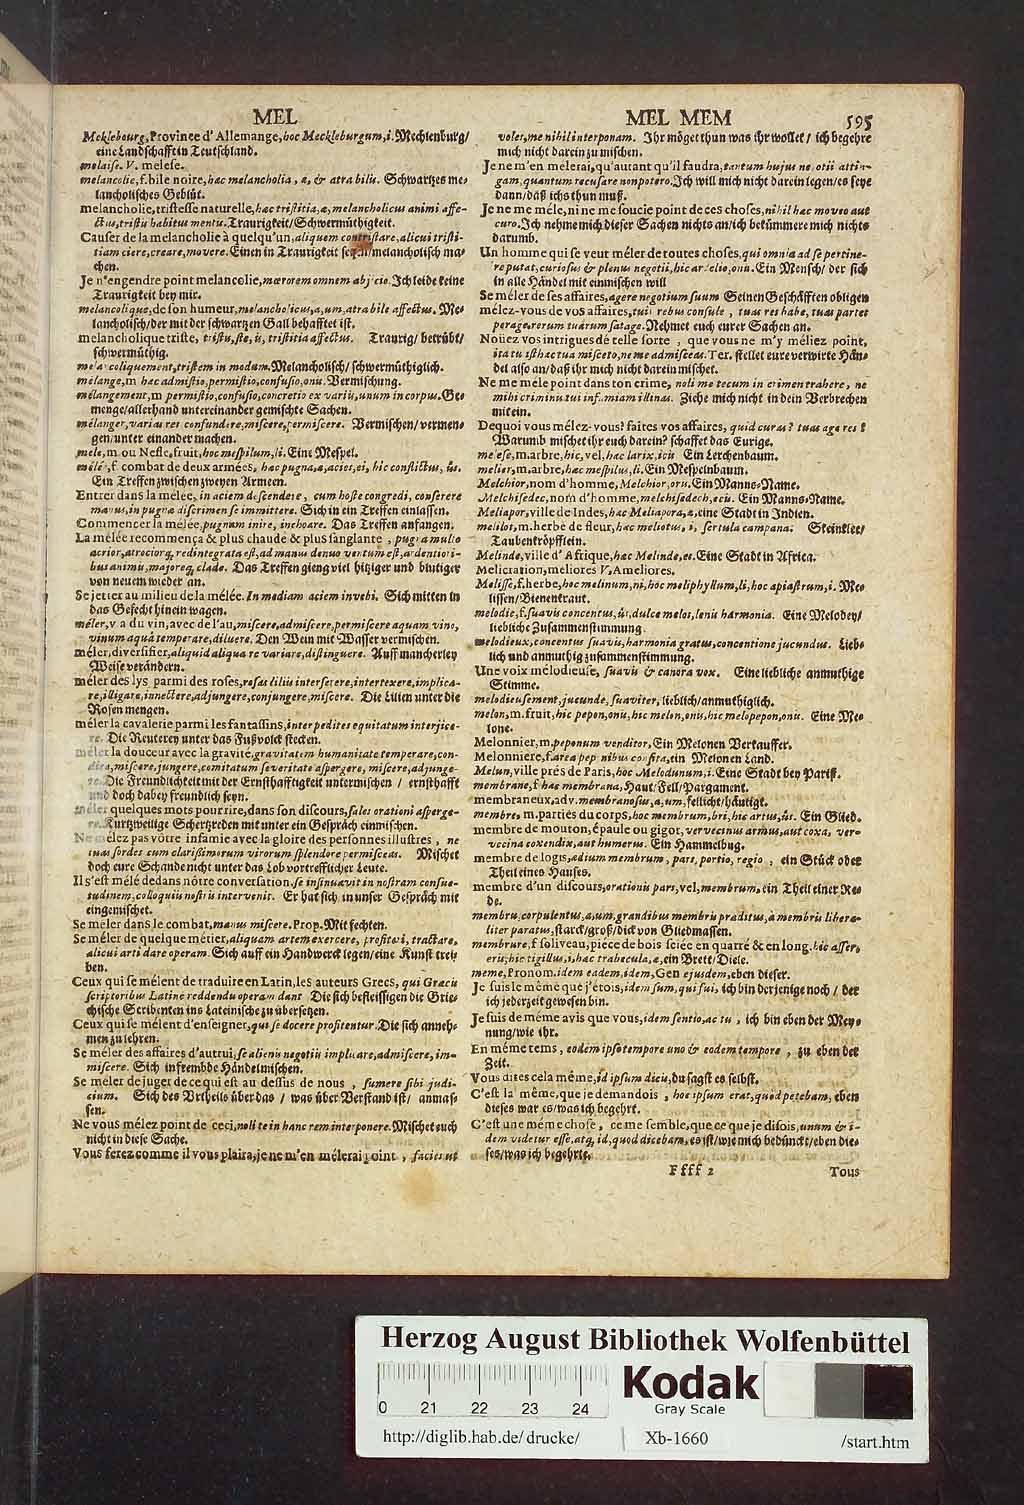 MEL
Mecklebourg, Province d'Allemange, hoc Meckleburgum, i. Mechlenburg/
eine Landschafft in Teutschland.
malaise. V. melese.
melancolie, f. bile noire, hac melancholia, æ, & atra bilis. Schwartzes me-
lancholisches Geblüt.
melancholie, tristesse naturelle, hac tristitia, æ, melancholicus animi affe-
ctus, tristis habitus mentis. Traurigkeit/ Schwermüthigkeit.
Causer de la melancholie à quelqu'un, aliquem contristare, alicui tristi-
tiam ciere, creare, movere. Einen in Traurigkeit setzen/ melancholisch ma-
chen.
Je n'engendre point melancolie, mœrorem omnem abjicio. Ich leide keine
Traurigkeit bey mir.
melancolique, de son humeur, melancholicus, a, um, atra bile affectus. Me-
lancholisch/ der mit der schwartzen Gall behafftet ist.
melancholique triste, tristis, ste, is, tristitia affectus. Traurig/ betrübt/
schwermüthig.
melancoliquement, tristem in modum. Melancholisch/ schwermüthiglich.
mélange, m hac admistio, permistio, confusio, onis. Vermischung.
mélangement, m permistio, confusio, concretio ex variis, unum in corpus. Ge-
menge/ allerhand untereinander gemischte Sachen.
mélanger, varias res confundere, miscere, permiscere. Vermischen/ vermen-
gen/ unter einander machen.
mele, m. ou Nesle, fruit, hoc mespilum, li. Eine Mespel.
mêlé, f. combat de deux armées, hac pugna, æ, acies, ei, hic conflictus, ûs.
Ein Treffen zwischen zweyen Armeen.
Entrer dans la mélée, in aciem descendere, cum hoste congredi, conserere
manus, in pugnæ discrimen se immittere. Sich in ein Treffen einlassen.
Commencer la mélée, pugnam inire, inchoare. Das Treffen anfangen.
La mélée recommença & plus chaude & plus sanglante, pugna multo
acrior, atrocior�q; redintegrata est, ad manus denuo ventum est, ardentiori-
bus animis, majoreq; clade. Das Treffen gieng viel hitziger und blutiger
von neuem wieder an.
Se jetter au milieu de la mélée. In mediam aciem invehi. Sich mitten in
das Gefecht hinein wagen.
méler, v a du vin, avec de l'au, miscere, admiscere, permiscere aquam vino,
vinum aquâ temperare, diluere. Den Wein mit Wasser vermischen.
méler, diversifier, aliquid aliqua re variare, distinguere. Auff mancherley
Weise verändern.
méler des lys parmi des roses, rosas liliis interserere, intertexere, implica-
re, illigare, innectere, adjungere, conjungere, miscere. Die Lilien unter die
Rosen mengen.
méler la cavalerie parmi les fantassins, inter pedites equitatum interjice-
re. Die Reuterey unter das Fußvolck stecken.
méler la douceur avec la gravité, gravitatem humanitate temperare, con-
dire, miscere, jungere, comitatum severitate aspergere, miscere, adjunge-
re. Die Freundlichkeit mit der Ernsthafftigkeit untermischen/ ernsthafft
und doch dabey freundlich seyn.
méler quelques mots pour rire, dans son discours, sales orationi asperge-
re. Kurtzweilige Schertzreden mit unter ein Gespräch einmischen.
Ne mélez pas vôtre infamie avec la gloire des personnes illustres, ne
tuas sordes cum clarissimorum virorum splendore permisceas. Mischet
doch eure Schande nicht unter das Lob vortrefflicher Leute.
Il s'est mélé dedans nôtre conversation, se insinuavit in nostram consue-
tudinem, colloquiis nostris intervenit. Er hat sich in unser Gespräch mit
eingemischet.
Se meler dans le combat, manus miscere. Prop. Mit fechten.
Se méler de quelque métier, aliquam artem exercere, profiteri, tractare,
alicui arti dare operam. Sich auff ein Handwerck legen/ eine Kunst trei-
ben.
Ceux qui se mélent de traduire en Latin, les auteurs Grecs, qui Græcis
scriptoribus Latinè reddendis operam dant. Die sich befleissigen die Grie-
chische Scribenten ins Lateinische zu übersetzen.
Ceux qui se mélent d'enseigner, qui se docere profitentur. Die sich anneh-
men zu lehren.
Se méler des affaires d'autrui, se alienis negotiis implicare, admiscere, im-
miscere. Sich in frembde Händel mischen.
Se méler de juger de ce qui est au dessus de nous, sumere sibi judi-
cium. Sich des Urtheils über das/ was über Verstand ist/ anmas-
sen.
Ne vous mélez point de ceci, noli te in hanc rem interponere. Mischet euch
nicht in diese Sache.
Vous ferez comme il vous plaira, je ne m'en mélerai point, facies ut
MEL MEM 595
voles, me nihil interponam. Ihr möget thun was ihr wollet/ ich begehre
mich nicht darein zu mischen.
Je ne m'en mélerai, qu'autant qu'il faudra, tantum hujus negotii attin-
gam, quantum recusare non potero. Ich will mich nicht darein legen/ es seye
dann/ daß ichs thun muß.
Je ne me méle, ni ne me soucie point de ces choses, nihil hac moveo aut
curo. Ich nehme mich dieser Sachen nichts an/ ich bekümmere mich nichts
darumb.
Un homme qui se veut méler de toutes choses, qui omnia ad se pertine-
re putat, curiosus & plenus negotii, hic ardelio, onis. Ein Mensch/ der sich
in alle Händel mit einmischen will
Se méler de ses affaires, agere negotium suum Seinen Geschäfften obligen
mélez-vous de vos affaires, tuis rebus consule, tuas res habe, tuas partes
perage, rerum tuarum satage. Nehmet euch eurer Sachen an.
Noüez vos intrigues de telle sorte, que vous ne m'y méliez point,
ita tu isthæc tua misceto, ne me admisceas. Ter. stellet eure verwirte Hän-
del also an/ daß ihr mich nicht darein mischet.
Ne me méle point dans ton crime, noli me tecum in crimen trahere, ne
mihi criminis tui infamiam illinas. Ziehe mich nicht in dein Verbrechen
mit ein.
Dequoi vous mélez-vous? faites vos affaires, quid curas? tuas age res!
Warumb mischet ihr euch darein? schaffet das Eurige.
melese, m. arbre, hic, vel, hac larix, icis Ein Lerchenbaum.
melier, m. arbre, hac mespilus, li. Ein Mespelnbaum.
Melchior, nom d'homme, Melchior, oris. Ein Manns-Name.
Melchisedec, nom d'homme, melchisedech, ecis. Ein Manns-Name.
Meliapor, ville de Indes, hac Meliapora, æ, eine Stadt in Indien.
melilot, m. herbe de fleur, hac meliotus, i, sertula campana. Steinklee/
Taubenkröpfflein.
Melinde, ville d'Afrique, hac Melinde, es. Eine Stadt in Africa.
Melioration, meliores V. Ameliores.
Melisse, f. herbe, hoc melinum, ni, hoc meliphyllum, li, hoc apiastrum, i. Me-
lissen/ Bienenkraut.
melodie, f. suavis concentus, ûs, dulce melos, lenis harmonia. Eine Melodey/
liebliche Zusammenstimmung.
melodieux, concentus suavis, harmonia gratus, concentione jucundus. Lieb-
lich und anmuthig zusammenstimmung.
Une voix mélodieuse, suavis & canora vox. Eine liebliche anmuthige
Stimme.
melodieusement, jucunde, suaviter, lieblich/ anmuthiglich.
melon, m. fruit, hic pepon, onis, hic melon, onis, hic melopepon, onis. Eine Me-
lone.
Melonnier, m, peponum venditor, Ein Melonen Verkauffer.
Melonniere, f. area peponibus consita, ein Melonen Land.
Melun, ville prés de Paris, hoc Melodunum, i. Eine Stadt bey Pariß.
membrane, f hac membrana, Haut/ Fell/ Pargament.
membraneux, adv. membranosus, a, um, fellicht/ häutigt.
membre, m. parties du corps, hoc membrum, bri, hic artus, ûs. Ein Glied.
membre de mouton, épaule ou gigot, vervecinus armus, aut coxa, ver-
vecina coxendix, aut humerus. Ein Hammelbug.
membre de logis, ædium membrum, pars, portio, regio, ein Stück oder
Theil eines Hauses.
membre d'un discours, orationis pars, vel, membrum, ein Theil einer Re-
de.
membru, corpulentus, a, um, grandibus membris præditus, à membris libera-
liter paratus, starck/ groß/ dick von Gliedmassen.
membrure, f. soliveau, piéce de bois sciée en quarré & en long, hic asser,
eris, hic tigillus, i, hac trabecula, æ, ein Brett/ Diele.
meme, Pronom. idem eadem, idem, Gen ejusdem, eben dieser.
Je suis le même que j'étois, idem sum, qui fui, ich bin derjenige noch/ der
ich jederzeit gewesen bin.
Je suis de même avis que vous, idem sentio, ac tu, ich bin eben der Mey-
nung/ wie ihr.
En même tems, eodem ipso tempore uno & eodem tempore, zu eben der
Zeit.
Vous dites cela même, id ipsum dicis, du sagst es selbst.
C'est la même, que je demandois, hoc ipsum erat, quod petebam, eben
dieses war es/ was ich begehrt.
C'est une méme chose, ce me semble, que ce que je disois, unum & i-
dem videtur esse, atq, id, quod dicebam, es ist/ wie mich bedünckt/ eben die-
ses/ was ich begehrte.
Ffff 2 Tous
Herzog August Bibliothek Wolfenbüttel
0 21 22 23 24
Kodak
Gray Scale
http://diglib.hab.de/drucke/ Xb-1660 /start.htm